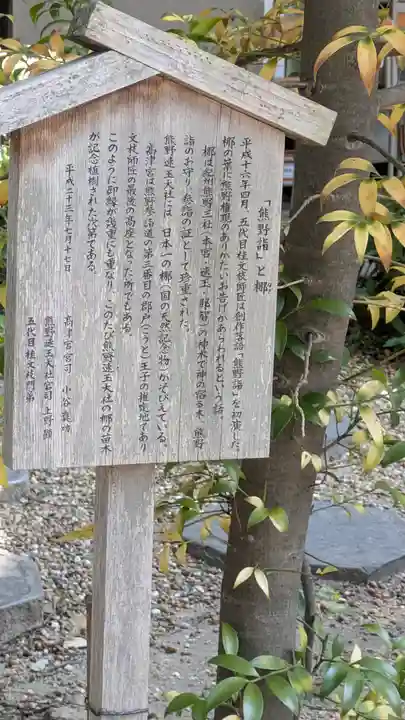 「熊野詣」と梛
平成十六年四月、五代目桂文枝師匠は創作落語「熊野詣」を初演した。
梛の葉に熊野権現のありがたいお告げがあらわれるという話。
梛は紀州熊野三社(本宮・速玉・那智)の神木で神の宿る木、熊野
詣のお守り、参詣の証として珍重された。
熊野速玉大社には、日本一の梛(国の天然記念物)がそびえている。
高津宮は熊野参詣道の第三番目の郡戸(こうと)王子の推定地であり
文枝師匠の最後の高座となった所でもある。
このように御縁が幾重にも重なり、このたび熊野速玉大社の梛の苗木
が記念植樹された次第である。
平成二十三年七月十七日
高津宮宮司 小谷真功
熊野速玉大社宮司 上野顯
五代目桂文枝門弟